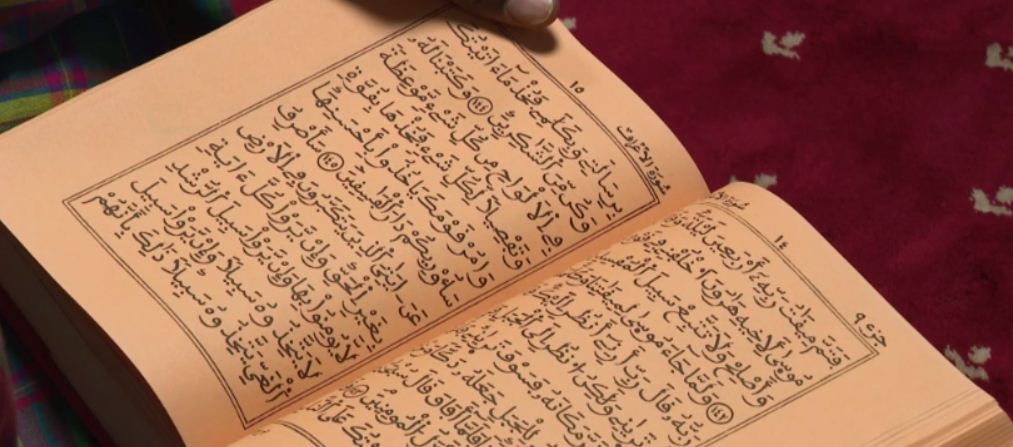 جزء ٩
١٤
فَتَمَّ مِيقَٰتُ رَبِّهِۦٓ أَرْبَعِينَ لَيْلَةً
مُوسَىٰ لِأَخِيهِ هَٰرُونَ ٱخْلُفْنِى فِى
وَأَصْلِحْ وَلَا تَتَّبِعْ سَبِيلَ
١٤٢ وَلَمَّا جَآءَ مُوسَىٰ لِمِيقَٰتِنَا
رَبُّهُۥ قَالَ رَبِّ أَرِنِىٓ أَنظُرْ إِلَيْكَ
تَرَىٰنِى وَلَٰكِنِ ٱنظُرْ إِلَى ٱلْجَبَلِ
مَكَانَهُۥ فَسَوْفَ تَرَىٰنِى
لِلْجَبَلِ جَعَلَهُۥ دَكًّا
فَلَمَّآ أَفَاقَ قَالَ
ٱلْمُؤْمِنِينَ
سورة الأعراف
١٥
بِرِسَٰلَٰتِى وَبِكَلَٰمِى فَخُذْ مَآ ءَاتَيْتُكَ
وَكُن مِّنَ ٱلشَّٰكِرِينَ ١٤٤ وَكَتَبْنَا لَهُۥ
فِى ٱلْأَلْوَاحِ مِن كُلِّ شَىْءٍ مَّوْعِظَةً
وَتَفْصِيلًا لِّكُلِّ شَىْءٍ فَخُذْهَا بِقُوَّةٍ
وَأْمُرْ قَوْمَكَ يَأْخُذُوا۟ بِأَحْسَنِهَا
سَأُو۟رِيكُمْ دَارَ ٱلْفَٰسِقِينَ ١٤٥ سَأَصْرِفُ
عَنْ ءَايَٰتِىَ ٱلَّذِينَ يَتَكَبَّرُونَ فِى ٱلْأَرْضِ
بِغَيْرِ ٱلْحَقِّ وَإِن يَرَوْا۟ كُلَّ ءَايَةٍ
لَّا يُؤْمِنُوا۟ بِهَا وَإِن يَرَوْا۟ سَبِيلَ ٱلرُّشْدِ
لَا يَتَّخِذُوهُ سَبِيلًا وَإِن يَرَوْا۟ سَبِيلَ
ٱلْغَىِّ يَتَّخِذُوهُ سَبِيلًا ذَٰلِكَ بِأَنَّهُمْ